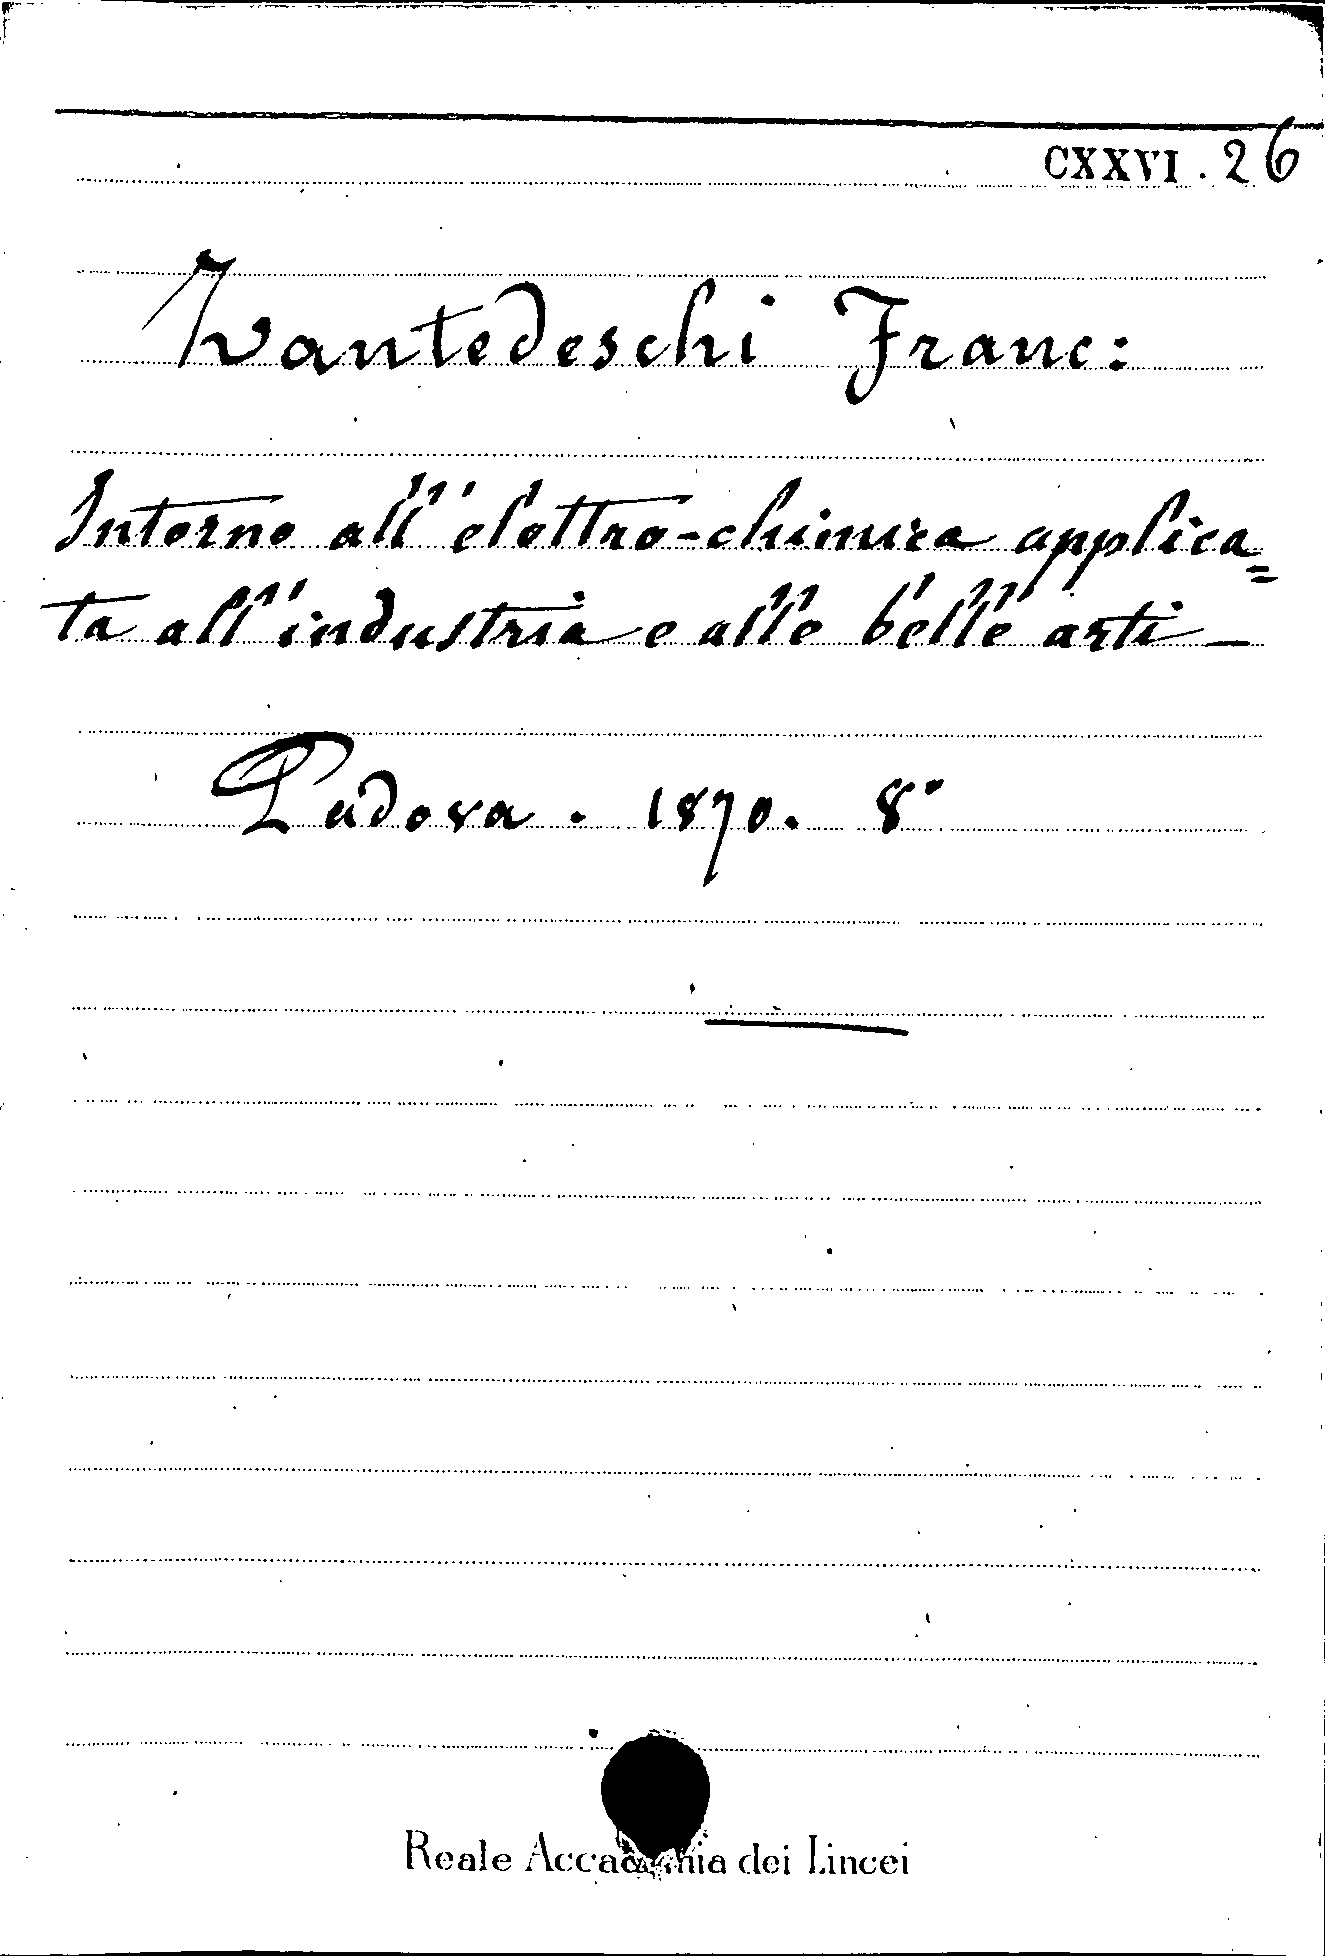 CXXVI . 26
Zantedeschi Franc:
Intorno all'elettro-chimica applica=
ta all'industria e alle belle arti —
Padova . 1870. 8°
Reale Accademia dei Lincei